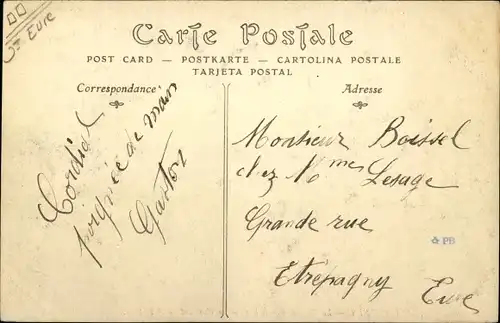 Eure
Carte Postale
POST CARD — POSTKARTE — CARTOLINA POSTALE
TARJETA POSTAL
Correspondance
Adresse
Cordial
poignée de main
Gaston
Monsieur Boissel
chez Mmes Lesage
Grande rue
Etrépagny
Eure
& PB